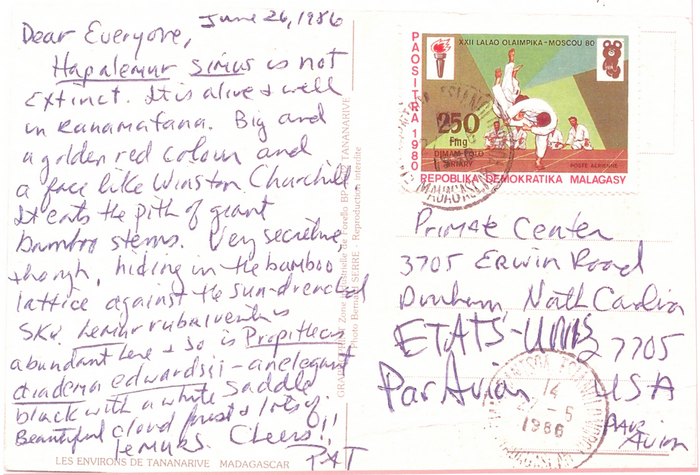 June 26, 1986
Dear Everyone,
Hapalemur simus is not
extinct. It is alive & well
in Ranamafana. Big and
a golden red colour and
a face like Winston Churchill
It eats the pith of giant
bamboo stems. Very secretive
though, hiding in the bamboo
lattice against the sun-drenched
sky. Lemur rubriventris
abundant here & so is Propithecus
diadema edwardsii - an elegant
black with a white saddle
Beautiful cloud forest & lots of
lemurs. Cheers!!
PAT
LES ENVIRONS DE TANANARIVE MADAGASCAR
TANANARIVE
Reproduction interdite
XXII LALAO OLAIMPIKA - MOSCOU 80
PAOSITRA 1980
250
Fmg
DIMAM-POLO
ARIARY
POSTE AERIENNE
REPOBLIKA DEMOKRATIKA MALAGASY
Primate Center
3705 Erwin Road
Durham, North Carolina
ETATS-UNIS 27705
Par Avion USA
PAR
Avion
14
1986